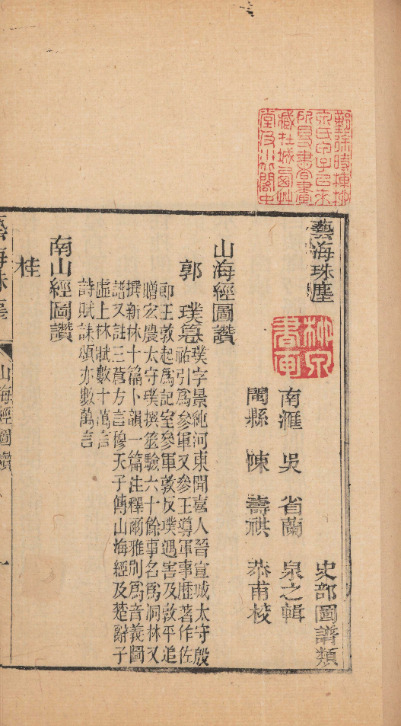 藝海珠塵
史部圖譜類
南滙 吳 省蘭 泉之輯
閩縣 陳 壽祺 恭甫校
山海經圖讚
郭 璞
璞字景純河東聞喜人晉宣城太守殷
祐引爲參軍又參王導軍事遷著作佐
郎王敦起爲記室參軍敦反璞遇害及敦平追
贈宏農太守璞撰筮驗六十餘事名爲洞林又
撰新林十篇卜韻一篇注釋爾雅別爲音義圖
譜又註三蒼方言穆天子傳山海經及楚辭子
虛上林賦數十萬言
詩賦誄頌亦數萬言
南山經圖讚
桂
藝海珠塵
山海經圖讚
一
柳泉書畫